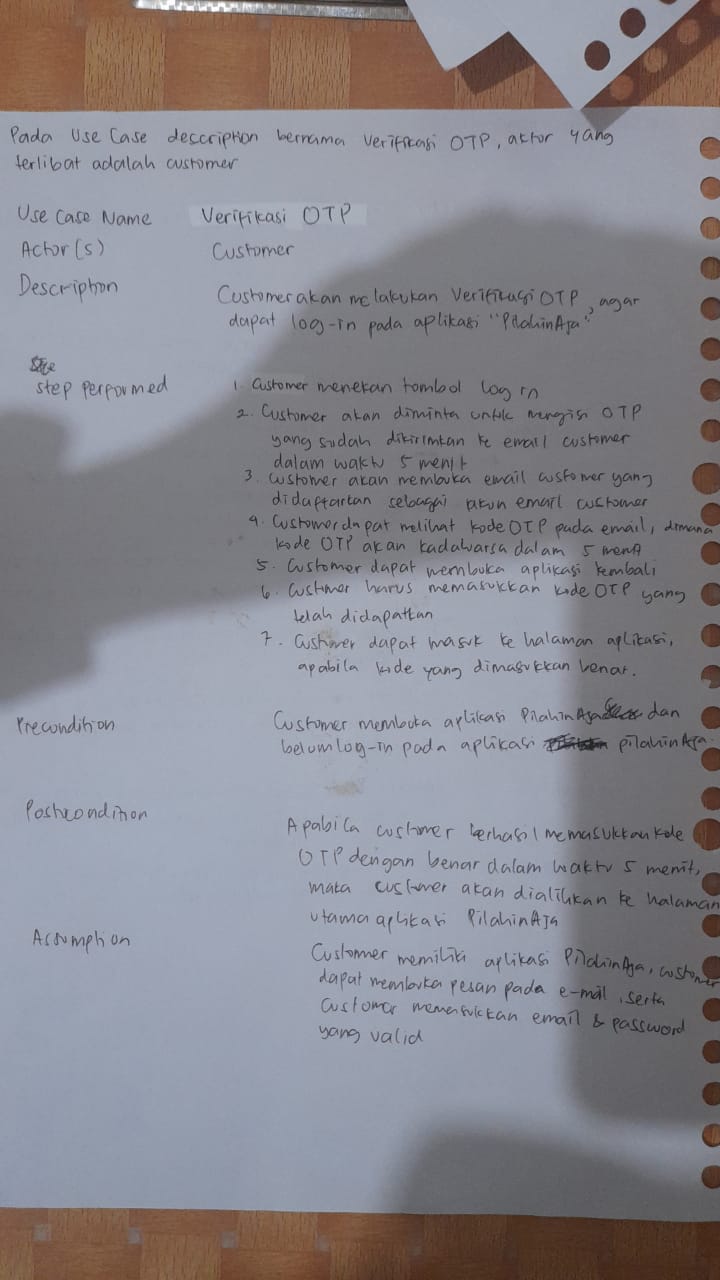 Pada Use Case description bernama Verifikasi OTP, aktor yang
terlibat adalah customer
Use Case Name Verifikasi OTP
Actor(s) Customer
Description Customer akan melakukan Verifikasi OTP, agar
dapat log-in pada aplikasi "PilahinAja".
step performed 1. Customer menekan tombol log in
2. Customer akan diminta untuk mengisi OTP
yang sudah dikirimkan ke email customer
dalam waktu 5 menit
3. Customer akan membuka email customer yang
didaftarkan sebagai akun email customer
4. Customer dapat melihat kode OTP pada email, dimana
kode OTP akan kadaluarsa dalam 5 menit
5. Customer dapat membuka aplikasi kembali
6. Customer harus memasukkan kode OTP yang
telah didapatkan
7. Customer dapat masuk ke halaman aplikasi,
apabila kode yang dimasukkan benar.
Precondition Customer membuka aplikasi PilahinAja dan
belum log-in pada aplikasi pilahinAja.
Postcondition Apabila customer berhasil memasukkan kode
OTP dengan benar dalam waktu 5 menit,
maka customer akan dialihkan ke halaman
utama aplikasi PilahinAja
Assumption Customer memiliki aplikasi PilahinAja, customer
dapat membuka pesan pada e-mail, serta
Customer memasukkan email & password
yang valid